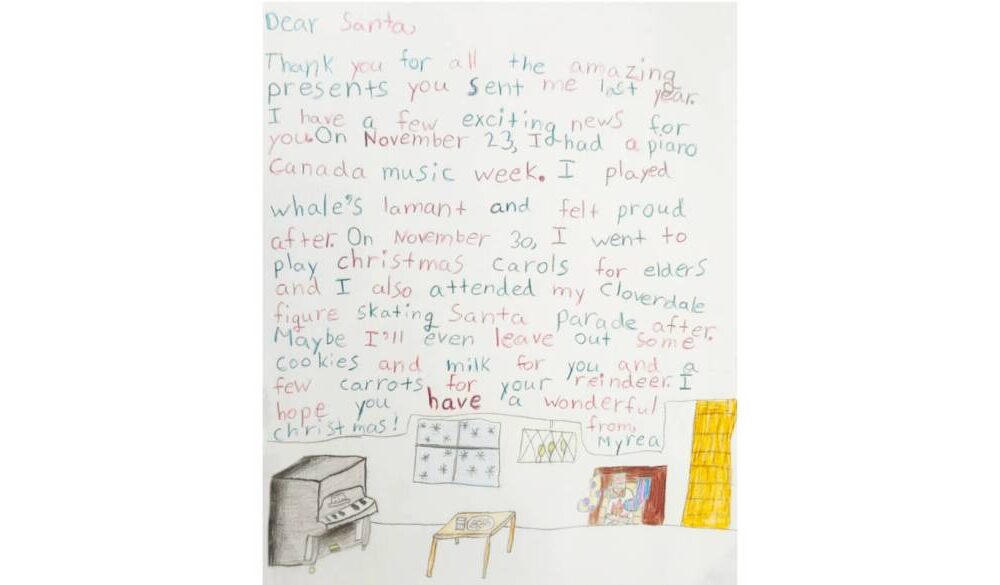 Dear Santa,
Thank you for all the amazing
presents you sent me last year.
I have a few exciting news for
you. On November 23, I had a piano
Canada music week. I played
whale's lamant and felt proud
after. On November 30, I went to
play christmas carols for elders
and I also attended my Cloverdale
figure skating Santa parade after.
Maybe I'll even leave out some
cookies and milk for you and a
few carrots for your reindeer. I
hope you have a wonderful
christmas!
from,
Myrea